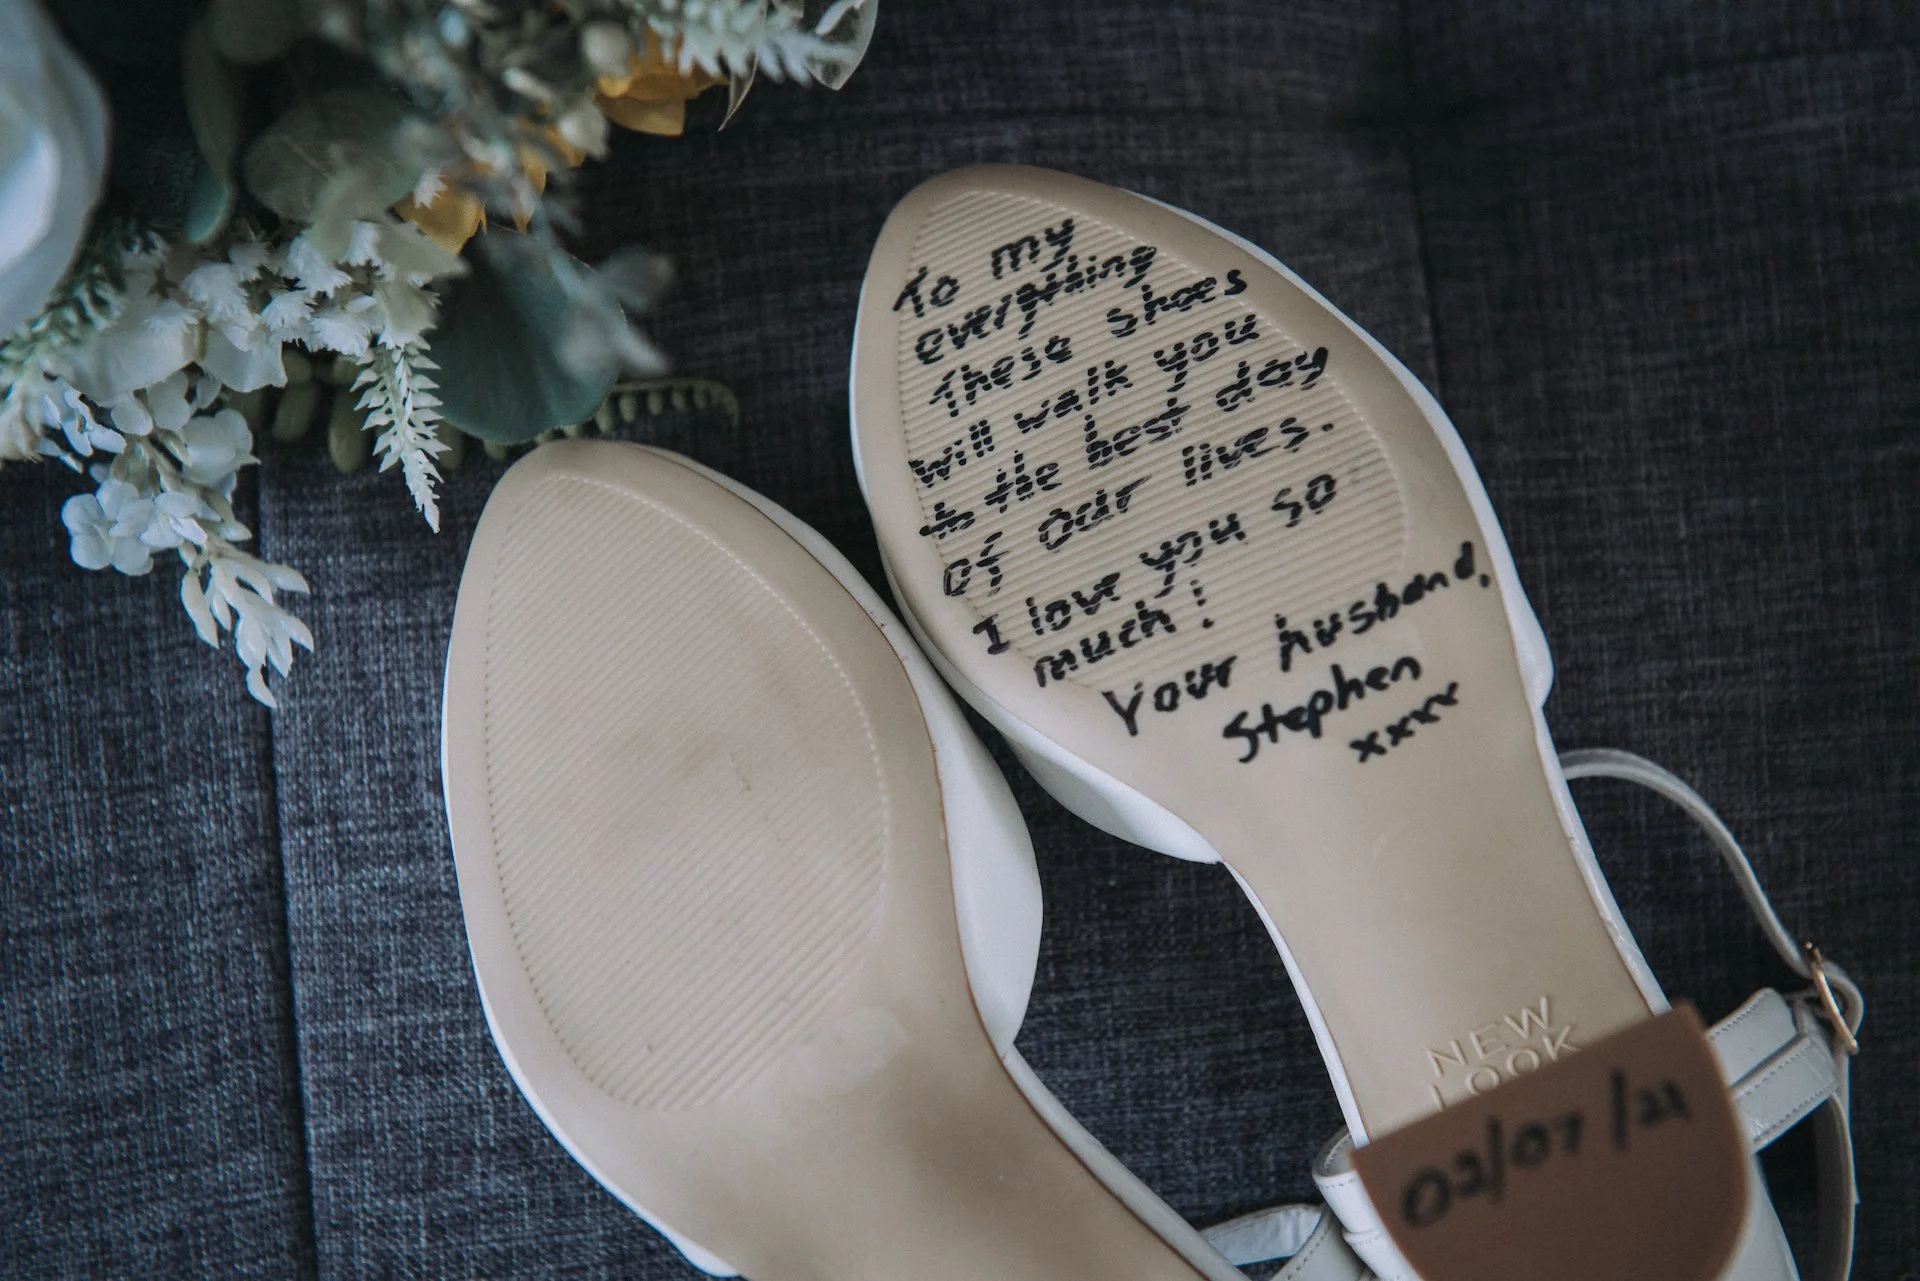 To my
everything
These shoes
will walk you
to the best day
of our lives.
I love you so
much!
Your husband,
Stephen
xxxx
NEW
LOOK
02/07/21